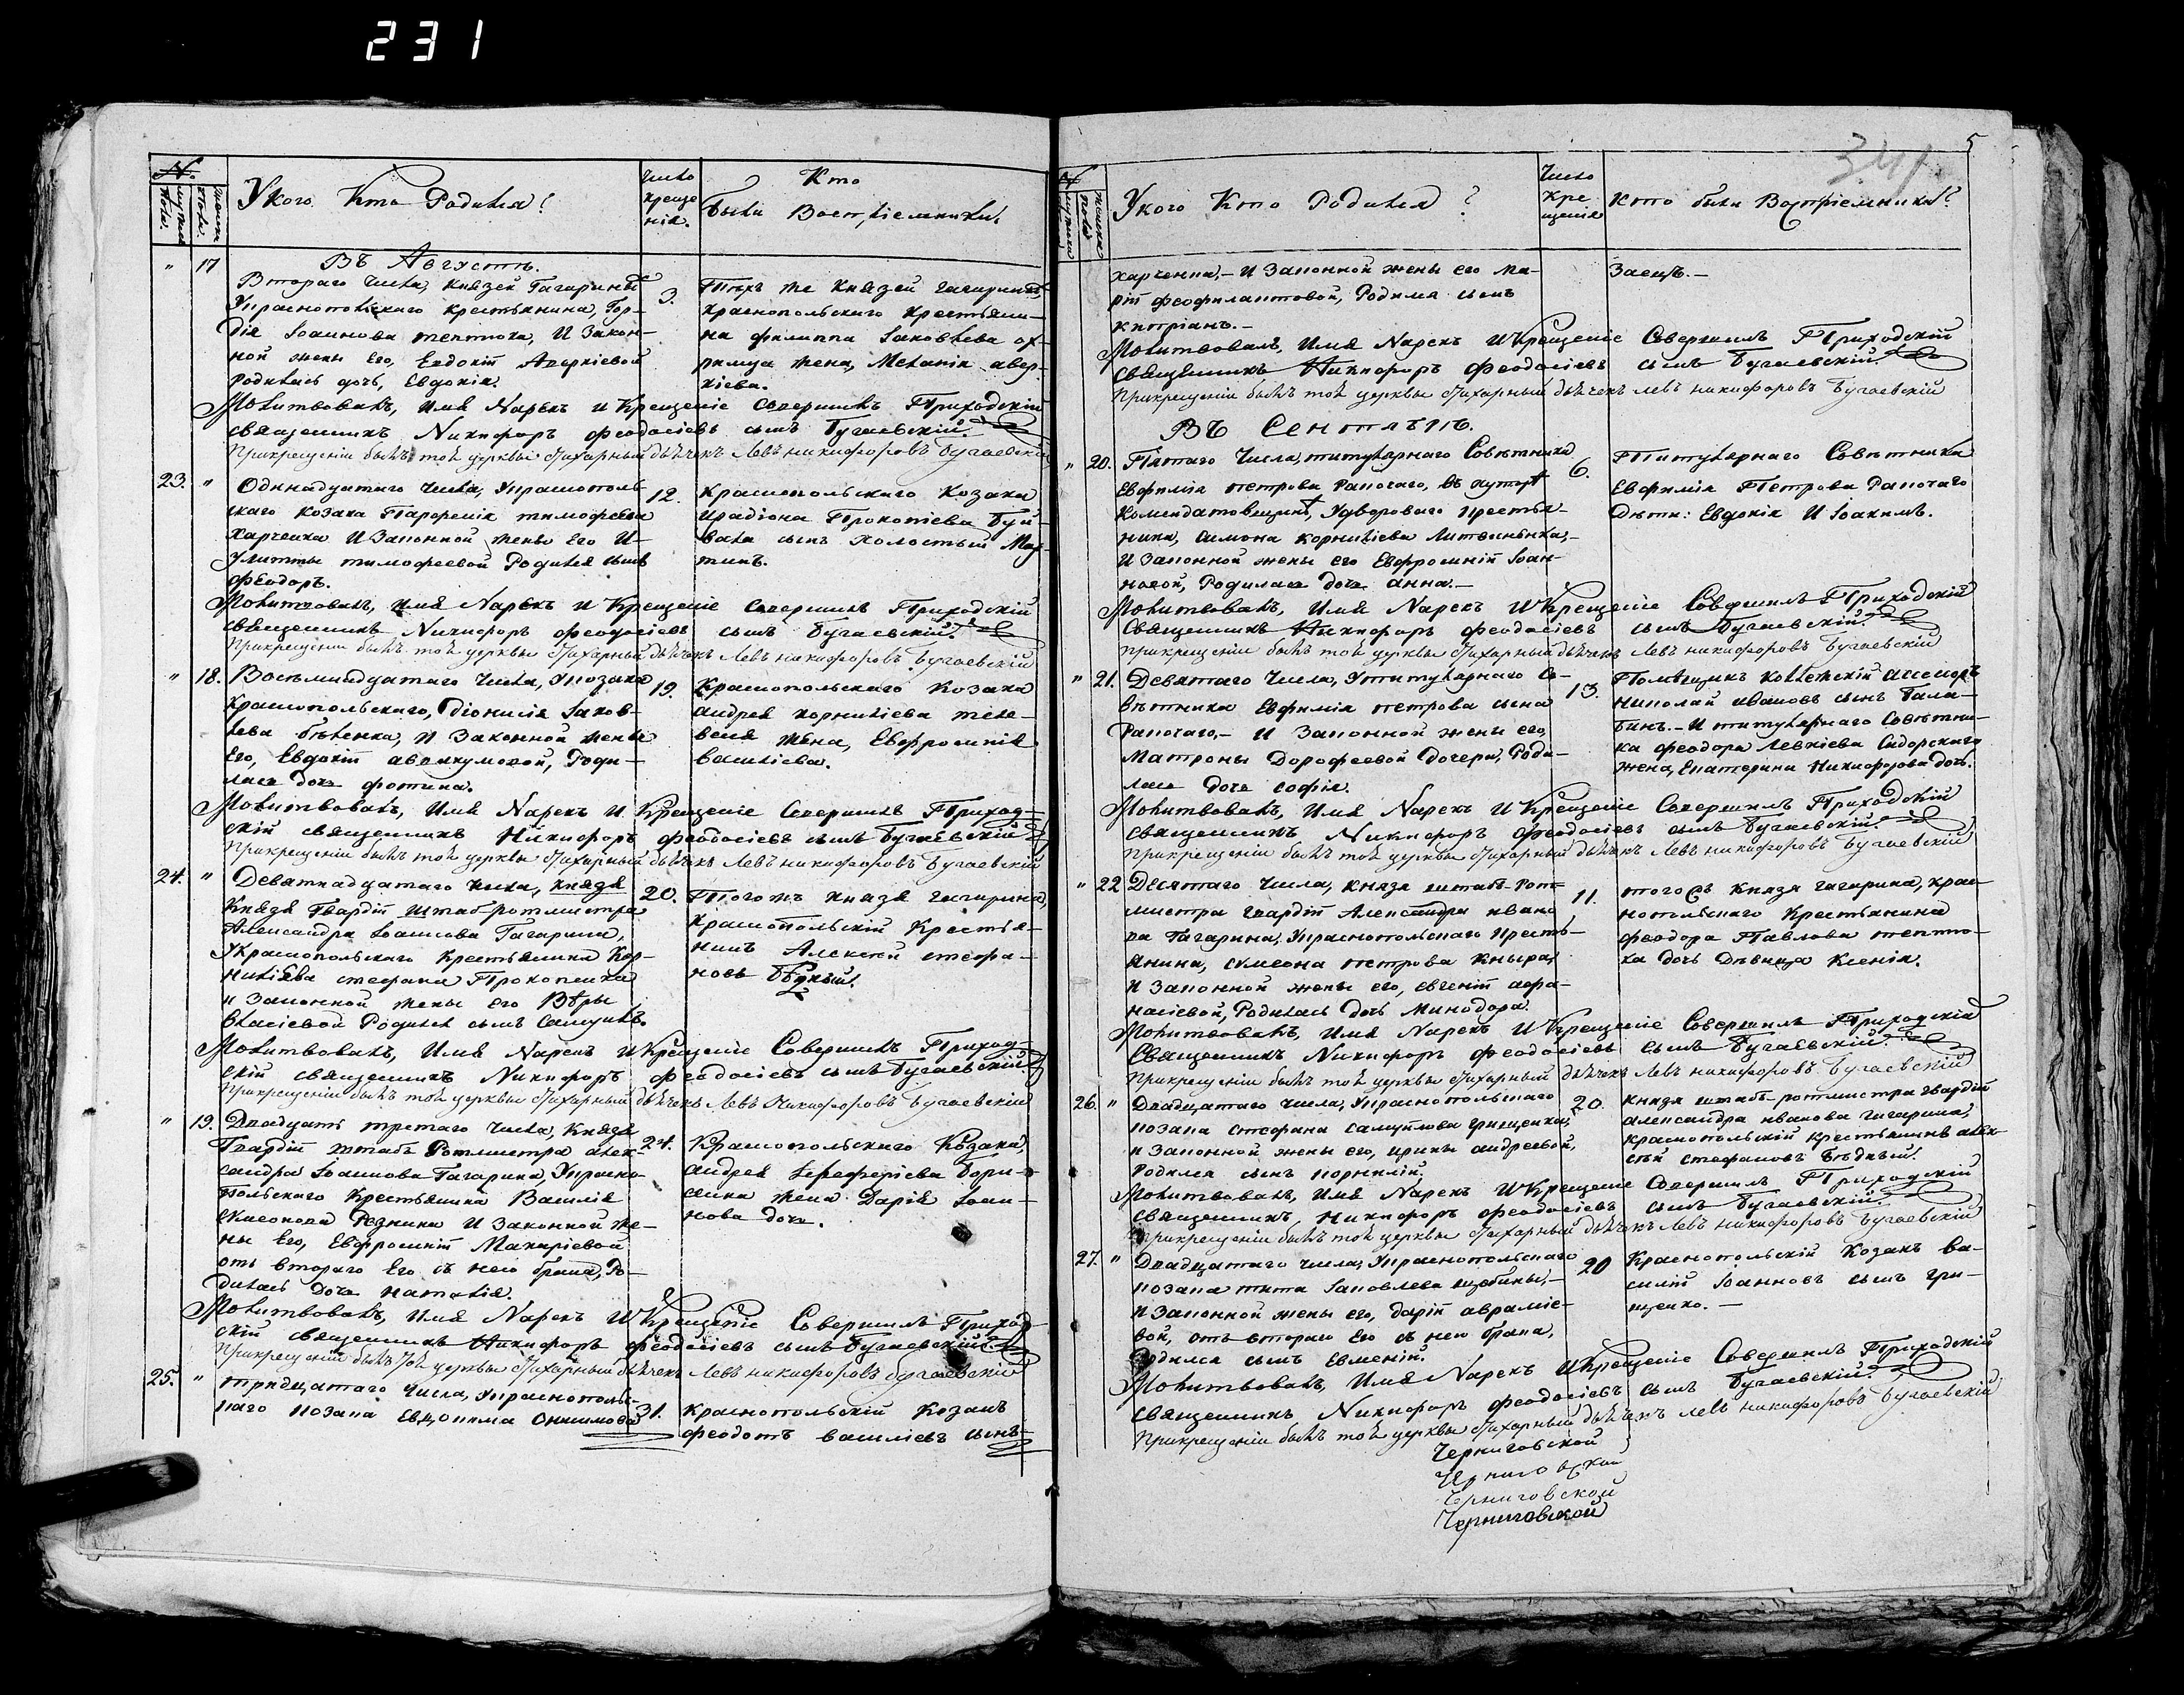 231
341
5
N.
Укого Кто Родился?
Число крещенія.
Кто были Воспріемники.
Въ Августѣ.
" 17
Втораго числа, Князей Гагариныхъ
Украснопольскаго крестьянина, Гор-
дія Іоаннова тептюха, И Закон-
ной жены Его, Евдокіи Аверкіевой
родилась дочь, Евдокія.
3.
Тѣхъ же Князей Гагариныхъ,
краснопольскаго крестьяни-
на филиппа Іаковлева ох-
рамца жена, Меланія авер-
кіева.
Молитвовалъ, Имя Нарекъ и Крещеніе совершилъ Приходскій
священникъ Никифоръ феодосіевъ сынъ Бугаевскій.
Прикрещеніи былъ той церкви стихарный дьячекъ Левъ никифоровъ Бугаевскій
23. "
Одинадцатаго числа, Украснополь-
скаго козака Парфенія тимофеева
Харченка И Законной жены Его И-
улитты тимофеевой Родился сынъ
феодоръ.
12.
Краснопольскаго Козака
Иродіона Прокопіева Буй-
вала сынъ холостый Мар-
тинъ.
Молитвовалъ, Имя Нарекъ и Крещеніе совершилъ Приходскій
священникъ Никифоръ феодосіевъ сынъ Бугаевскій.
Прикрещеніи былъ той церкви стихарный дьячекъ Левъ никифоровъ Бугаевскій
" 18.
Восьмнадцатаго числа, Укозака
Краснопольскаго, Діонисія Іаков-
лева бѣленка, И Законной жены
Его, Евдокіи аввакумовой, Роди-
лась дочь фотина.
19.
Краснопольскаго Козака
андрея корниліева теле-
веня жена, Евфросинія
василіева.
Молитвовалъ, Имя Нарекъ и Крещеніе Совершилъ Приход-
скій священникъ Никифоръ феодосіевъ сынъ Бугаевскій
Прикрещеніи былъ той церкви стихарный дьячекъ Левъ никифоровъ Бугаевскій
24. "
Девятнадцатаго числа, князя
Князя Гвардіи штаб-ротмистра
Александра Іоаннова Гагарина,
Украснопольскаго Крестьянина Кор-
ниліева стефана Прокопенка
и Законной жены его Вѣры
власіевой Родился сынъ Самуилъ.
20.
Тогожъ князя гагарина,
краснопольскій Крестья-
нинъ Алексей стефа-
новъ Бѣдный.
Молитвовалъ, Имя Нарекъ и Крещеніе Совершилъ Приход-
скій священникъ Никифоръ феодосіевъ сынъ Бугаевскій
Прикрещеніи былъ той церкви стихарный дьячекъ Левъ Никифоровъ Бугаевскій
" 19.
Двадцать третаго числа, Князя
Гвардіи штабъ Ротмистра алек-
сандра Іоаннова Гагарина, Украсно-
польскаго Крестьянина Василія
Симеонова Резника И Законной же-
ны Его, Евфросиніи Макаріевой
отъ втораго Его съ нею брака, Ро-
дилась дочь наталія.
24.
Краснопольскаго Козака,
андрея Елефферіева Бори-
сенка жена Дарія Іоан-
нова дочь.
Молитвовалъ, Имя Нарекъ И Крещеніе Совершилъ Приход-
скій священникъ Никифоръ феодосіевъ сынъ Бугаевскій.
Прикрещеніи былъ той церкви стихарный дьячекъ Левъ никифоровъ бугаевскій
25. "
тридцатаго числа, Украснополь-
наго козака Евдокима Онисимова
31.
Краснопольскій Козакъ
феодотъ василіевъ сынъ
N
Укого Кто Родился?
Число Крещенія
Кто были Воспріемники?
харченка,- и Законной жены его Ма-
ріи феофилактовой, Родился сынъ
кипріанъ.-
Заецъ.-
Молитвовалъ, Имя Нарекъ И Крещеніе Совершилъ Приходскій
священникъ Никифоръ феодосіевъ сынъ Бугаевскій
Прикрещеніи былъ той церкви стихарный дьячекъ левъ никифоровъ Бугаевскій
Въ Сентябрѣ.
" 20.
Пятаго Числа, титулярнаго Совѣтника
Евфимія петрова Рапочаго, въ хуторѣ
Комендатовщинѣ, Удвороваго крестья-
нина, симона корниліева Литвиненка,-
И Законной жены его Евфросиніи Іоан-
новой, Родилась дочь анна.-
6.
Титулярнаго Совѣтника
Евфимія Петрова Рапочаго
Дѣти: Евдокія И Іоакимъ.
Молитвовалъ, Имя Нарекъ И Крещеніе Совершилъ Приходскій
Священникъ Никифоръ феодосіевъ сынъ Бугаевскій.
Прикрещеніи былъ той церкви стихарный дьячекъ Левъ никифоровъ Бугаевскій
" 21.
Девятаго Числа, Утитулярнаго Со-
вѣтника Евфимія петрова сына
Рапочаго,- И Законной жены его,
Матроны Дорофеевой Дочери, Роди-
лась дочь софія.
13.
Помѣщикъ Коллежскій Ассесоръ
Николай ивановъ сынъ Бала-
бинъ.- и титулярнаго Совѣтни-
ка феодора Левкіева Сидорскаго
жена, Екатерина Никифорова дочь.
Молитвовалъ, Имя Нарекъ И Крещеніе Совершилъ Приходскій
священникъ Никифоръ феодосіевъ сынъ Бугаевскій.
Прикрещеніи былъ той церкви стихарный дьячекъ Левъ никифоровъ Бугаевскій
" 22
Десятаго Числа, князя штабъ-рот-
мистра гвардіи Александра ивано-
ва Гагарина, Украснопольскаго кресть-
янина, симеона петрова кныра,
и Законной жены его, евгеніи афа-
насіевой, Родилась дочь Минодора.
11.
тогожъ Князя гагарина, крас-
нопольскаго Крестьянина
феодора Павлова тептю-
ха дочь Дѣвица Ксенія.
Молитвовалъ, Имя Нарекъ И Крещеніе Совершилъ Приходскій
Священникъ Никифоръ феодосіевъ сынъ Бугаевскій.
Прикрещеніи былъ той церкви стихарный дьячекъ Левъ никифоровъ Бугаевскій
26. "
Двадцатаго числа, Украснопольскаго
козака стефана самуйлова грищенка,
и Законной жены его, ирины андреевой,
Родился сынъ корнилій.
20.
князя штабъ-ротмистра гвардіи
александра иванова гагарина,
краснопольскій крестьянинъ алек-
сѣй стефановъ Бѣдный.
Молитвовалъ, Имя Нарекъ И Крещеніе Совершилъ Приходскій
священникъ Никифоръ феодосіевъ сынъ Бугаевскій
Прикрещеніи былъ той церкви стихарный дьячекъ Левъ никифоровъ Бугаевскій
27. "
Двадцатаго числа, Украснопольскаго
козака тита Іаковлева щербины,-
и Законной жены его, даріи авраміе-
вой, отъ втораго его съ нею брака,
Родился сынъ Евменій.
20
Краснопольскій Козакъ ва-
силій Іоанновъ сынъ гри-
щенко.-
Молитвовалъ, Имя Нарекъ И Крещеніе Совершилъ Приходскій
священникъ Никифоръ феодосіевъ сынъ Бугаевскій.
Прикрещеніи былъ той церкви стихарный дьячекъ левъ никифоровъ Бугаевскій
Черниговской
Черниговской
Черниговской
Черниговской